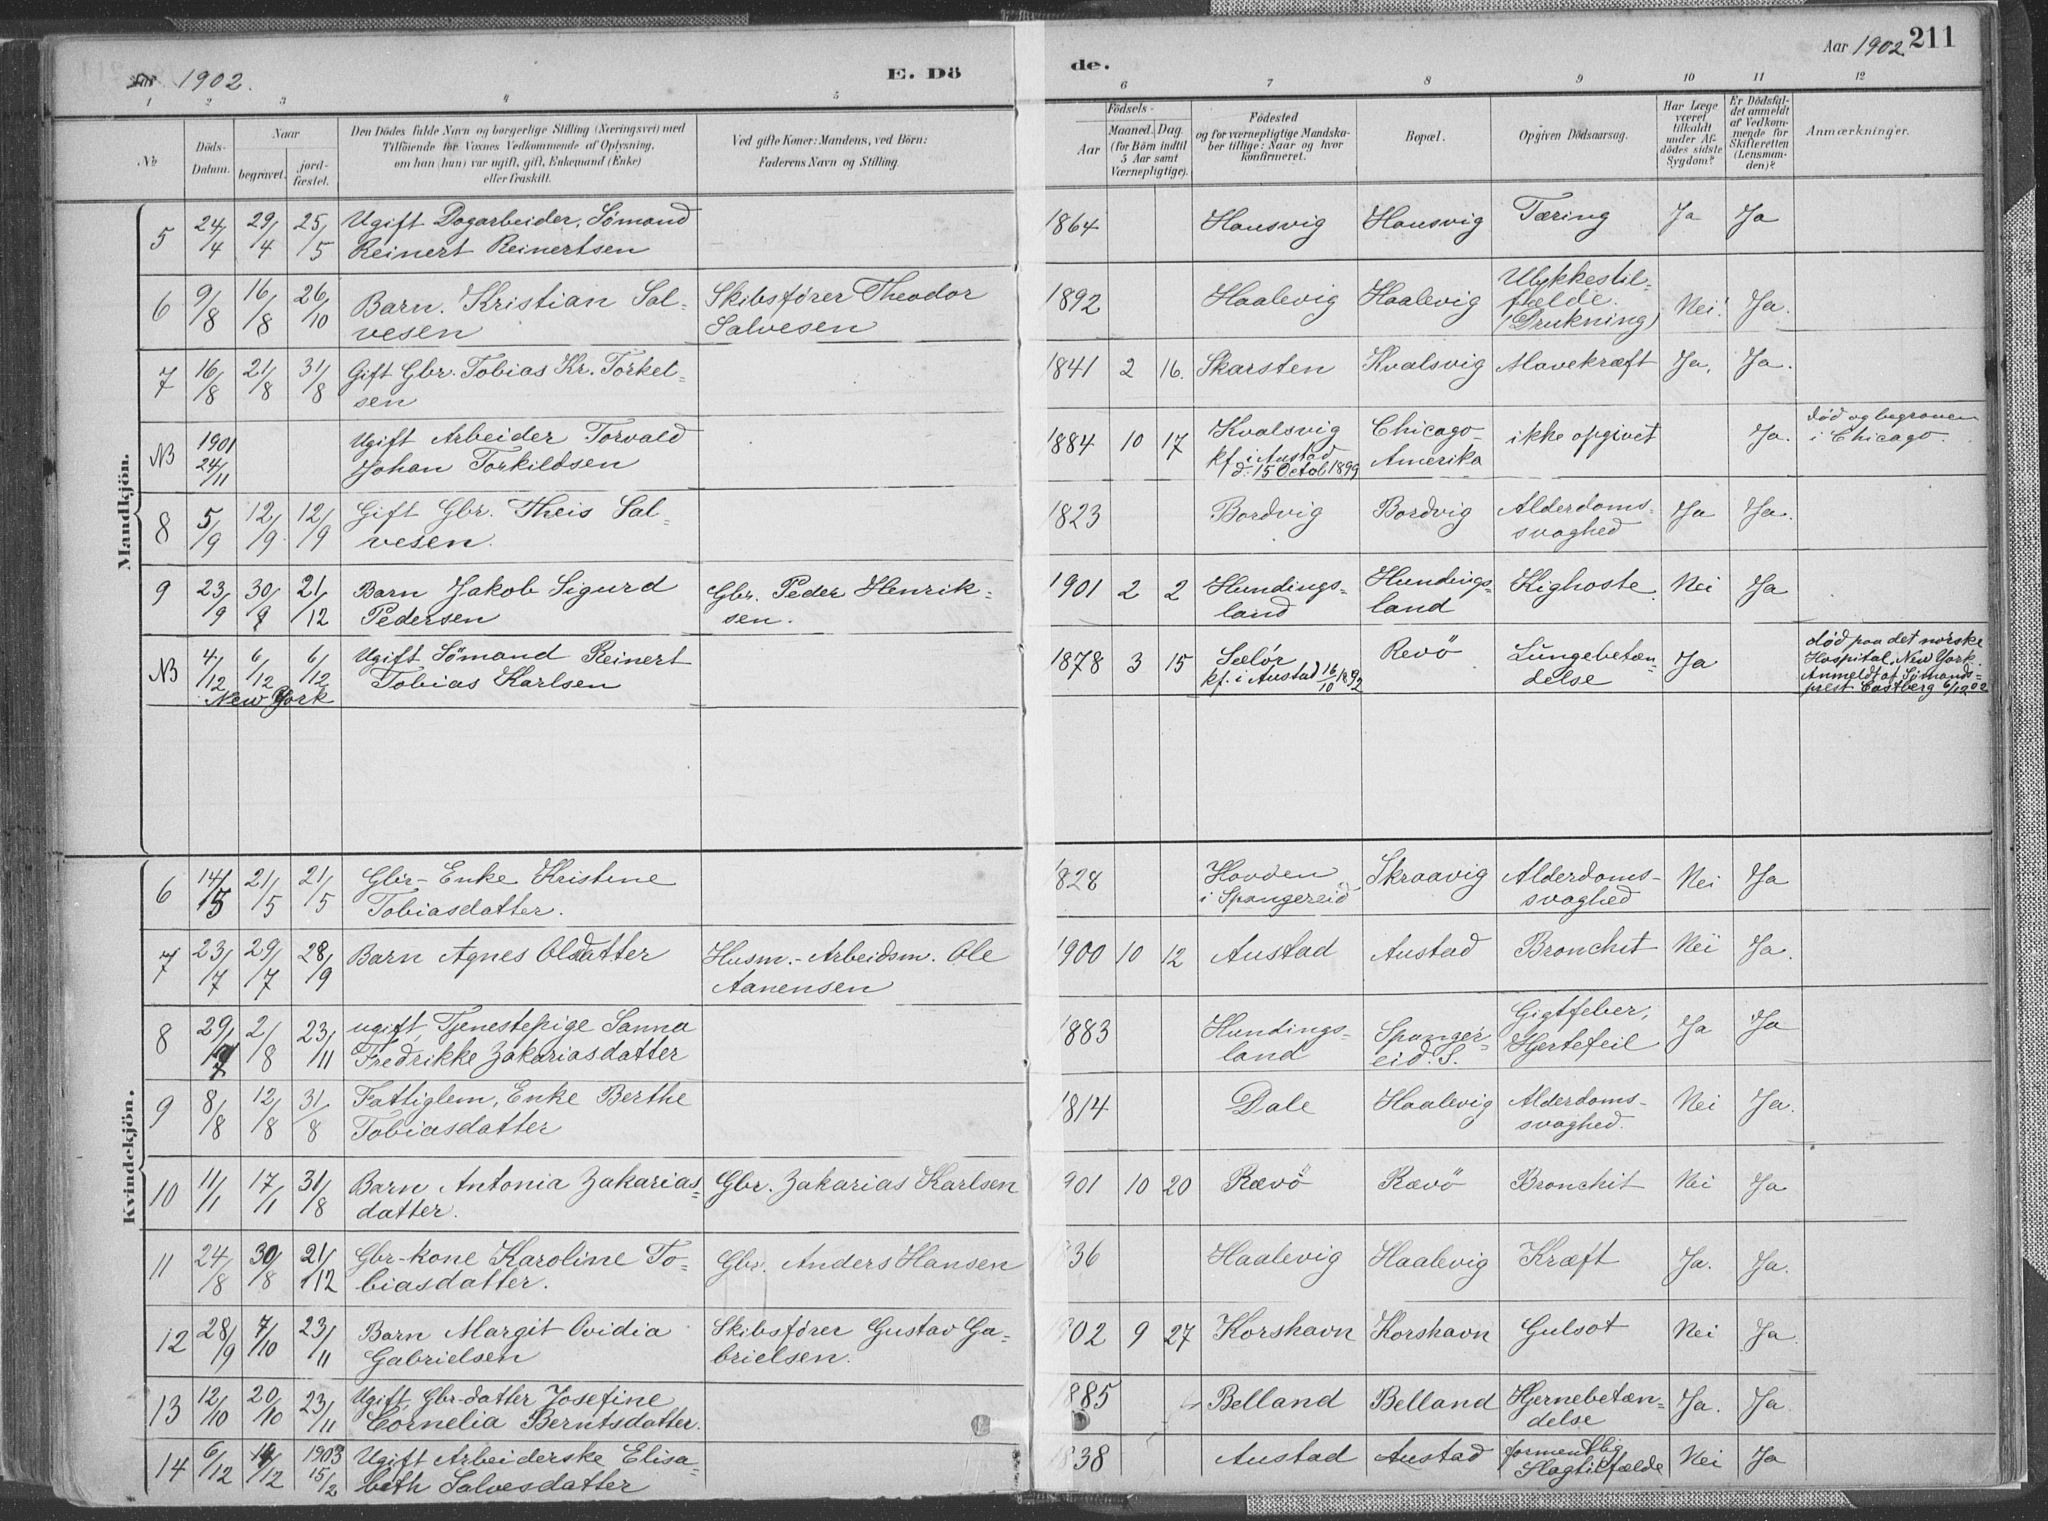 Aar 1902.
E. Dö
de.
Aar 1902 211
1 2 3 4 5 6 7 8 9 10 11 12
No
Döds-Datum.
Naar
begravet.
jord-fæstet.
Den Dödes fulde Navn og borgerlige Stilling (Næringsvei) med
Tilföiende for Voxnes Vedkommende af Oplysning,
om han (hun) var ugift, gift, Enkemand (Enke)
eller fraskilt.
Ved gifte Koner: Mandens, ved Börn:
Faderens Navn og Stilling.
Födsels-
Aar
Maaned. Dag.
(for Börn indtil
5 Aar samt
Værnepligtige).
Födested
og for værnepligtige Mandska-
ber tillige: Naar og hvor
konfirmeret.
Bopæl.
Opgiven Dödsaarsag.
Har Læge
været
tilkaldt
under Af-
dödes sidste
Sygdom?
Er Dödsfal-
det anmeldt
af Vedkom-
mende for
Skifteretten
(Lensman-
den)?
Anmærkninger.
Mandkjön.
5 24/4 29/4 25/5 Ugift Dagarbeider, Sömand 1864 Hausvig Hausvig Tæring Ja Ja
Reinert Reinertsen
6 9/8 16/8 26/10 Barn. Kristian Sal- Skibsfører Theodor 1892 Haalevig Haalevig Ulykkestil- Nei! Ja.
vesen Salvesen fælde.
(Drukning)
7 16/8 21/8 31/8 Gift Gbr. Tobias Kr. Torkel- 1841 2 16. Skarsten Kvalsvig Mavekræft Ja, Ja.
sen
NB 1901 24/11 Ugift Arbeider Torvald 1884 10 17 Kvalsvig Chicago, ikke opgivet Ja. död og begraven
Johan Torkildsen kf. i Austad Amerika i Chicago.
d. 15 Octob 1899
8 5/9 12/9. 12/9 Gift Gbr. Theis Sal- 1823 Bordvig Bordvig Alderdoms- Ja Ja.
vesen. svaghed
9 23/9 30/9 21/12 Barn Jakob Sigurd Gbr. Peder Henrik- 1901 2 2 Hundings- Hundings- Kighoste. Nei Ja
Pedersen sen. land land
NB 4/12 6/12 6/12 Ugift Sömand Reinert 1878 3 15 Sælør Revö Lungebetæn- Ja död paa det norske
New York Tobias Karlsen kf. i Austad 16/10 1892 delse Hospital, New York.
Anmeldt af Sömands-
prest Castberg 6/12 02
Kvindekjön.
6 14/5 21/5 21/5 Gbr- Enke Kristine 1828 Hovden Skraavig Alderdoms- Nei Ja
Tobiasdatter. i Spangereid svaghed
7 23/7 29/7 28/9 Barn Agnes Olsdatter Husm.- Arbeidsm. Ole 1900 10 12 Austad Austad Bronchit Nei Ja.
Aanensen
8 29/7 2/8 23/11 ugift Tjenestepige Sanna 1883 Hundings- Spanger- Gigtfeber, Ja Ja
Fredrikke Zakariasdatter land eid. S. Hjertefeil
9 8/8 12/8 31/8 Fattiglem, Enke Berthe 1814 Dale Haalevig Alderdoms- Nei Ja.
Tobiasdatter svaghed.
10 11/1 17/1 31/8 Barn Antonia Zakarias- Gbr. Zakarias Karlsen 1901 10 20 Rævö Rævö Bronchit Nei Ja
datter.
11 24/8 30/8 21/12 Gbr-kone Karoline To- Gbr. Anders Hansen 36 Haalevig Haalevig Kræft Ja. Ja.
biasdatter.
12 28/9 7/10 23/11 Barn Margit Ovidia Skibsfører Gustav Ga- 902 9 27 Korshavn Korshavn Gulsot Nei Ja.
Gabrielsen brielsen.
13 12/10 20/10 23/11 Ugift, Gbr-datter Josefine 1885 Belland Belland Hjernebetæn- Ja. Ja.
Cornelia Berntsdatter. delse
14 6/12 14/12 1903 15/2 Ugift Arbeiderske Elisa- 1838 Austad Austad formentlig Nei Ja
beth Salvesdatter Slagtilfælde